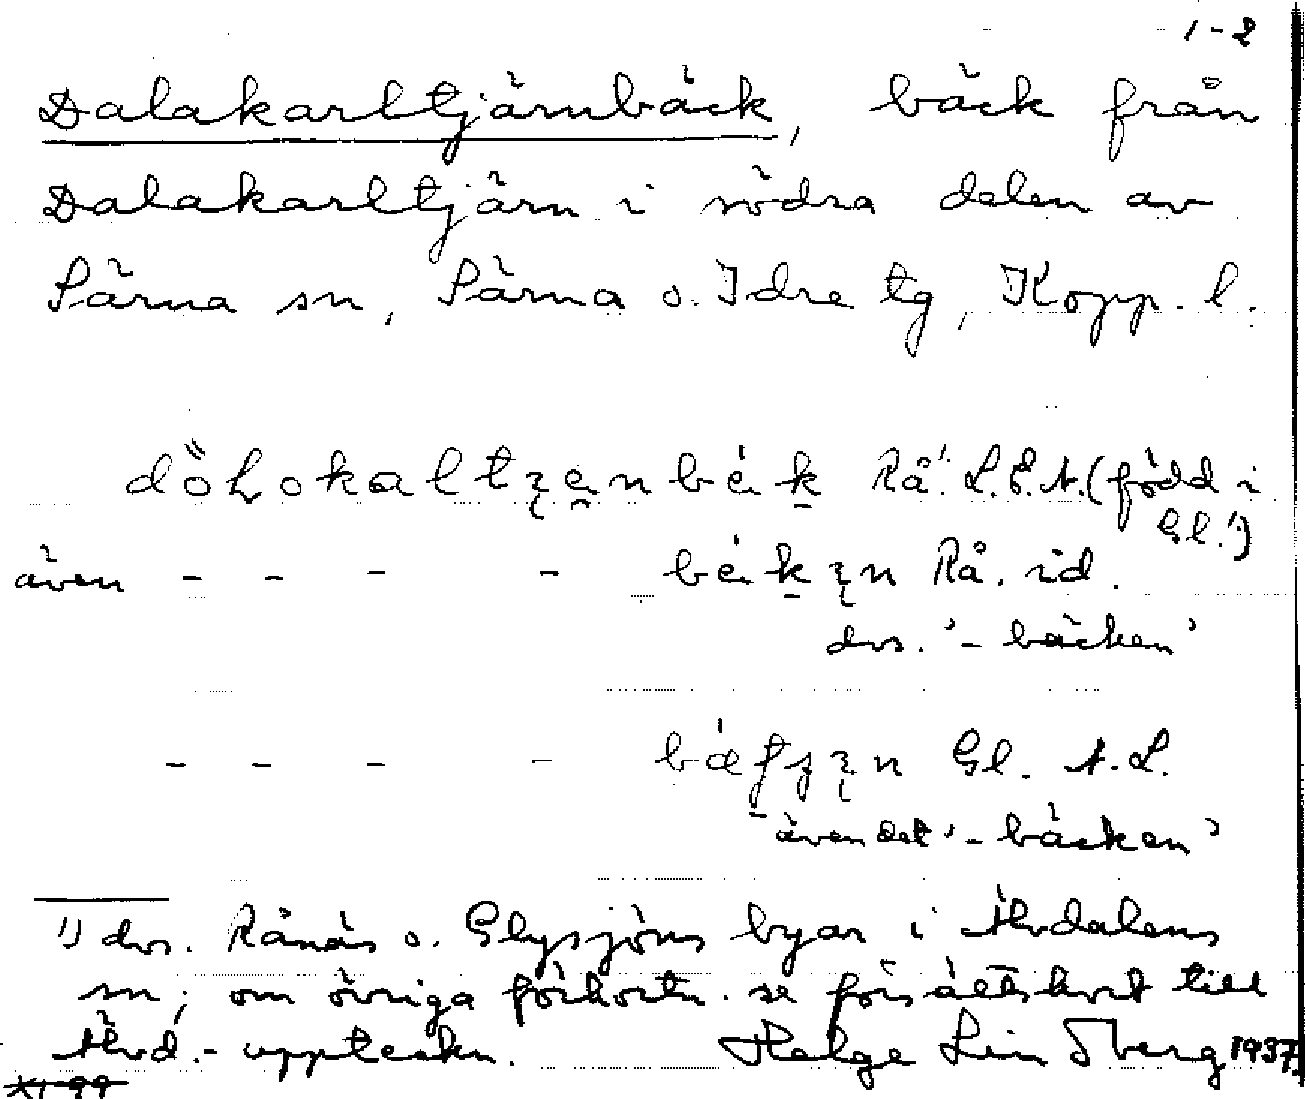 1-2
Dalakarltjärnbäck, bäck från
Dalakarltjärn i södra delen av
Särna sn, Särna o. Idre tg, Kopp. l.
Rå.¹⁾ L.E.A. (född i
Gl.¹⁾)
även - - - - Rå. id.
dvs. '- bäcken'
- - - - Gl. A.L.
även det '- bäcken'
¹⁾ dvs. Rånäs o. Glysjöns byar i Älvdalens
sn; om övriga förkortn. se försättskort till
Älvd.- uppteckn. Helge Lindberg 1937.
XI 99